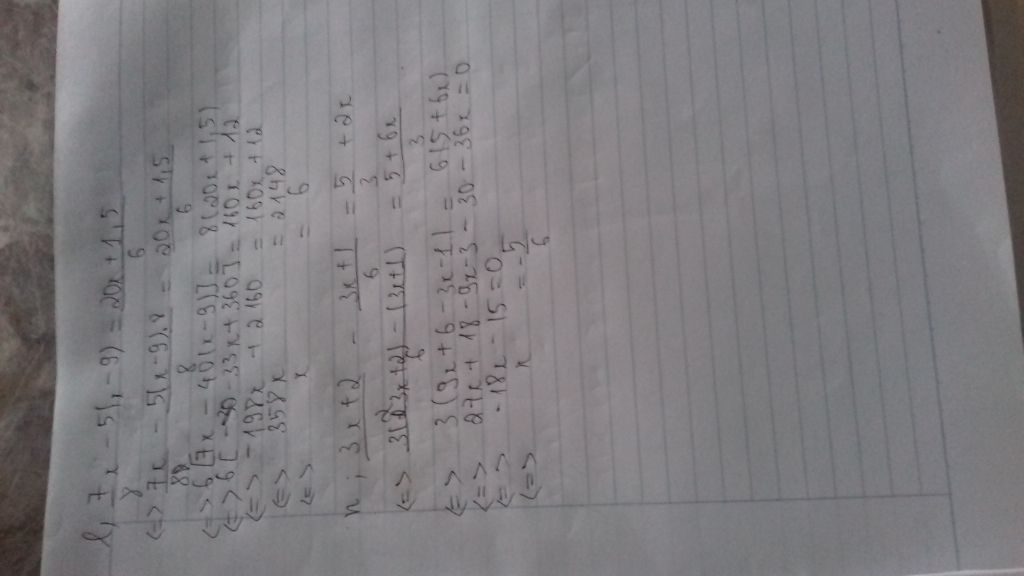 l, 7/8 x - 5(x - 9) = 20x + 1,5 / 6
<=> 7x/8 - 5(x-9).8 / 8 = 20x + 1,5 / 6
<=> 6[7x - 40(x-9)] = 8(20x + 1,5)
<=> 6[-33x + 360] = 160x + 12
<=> -198x + 2160 = 160x + 12
<=> 358x = 2148
<=> x = 6
n; 3x+2 / 2 - 3x+1 / 6 = 5/3 + 2x
<=> 3(3x+2) - (3x+1) / 6 = 5 + 6x / 3
<=> 3(9x + 6 - 3x - 1) = 6(5 + 6x)
<=> 27x + 18 - 9x - 3 - 30 - 36x = 0
<=> -18x - 15 = 0
<=> x = -5/6